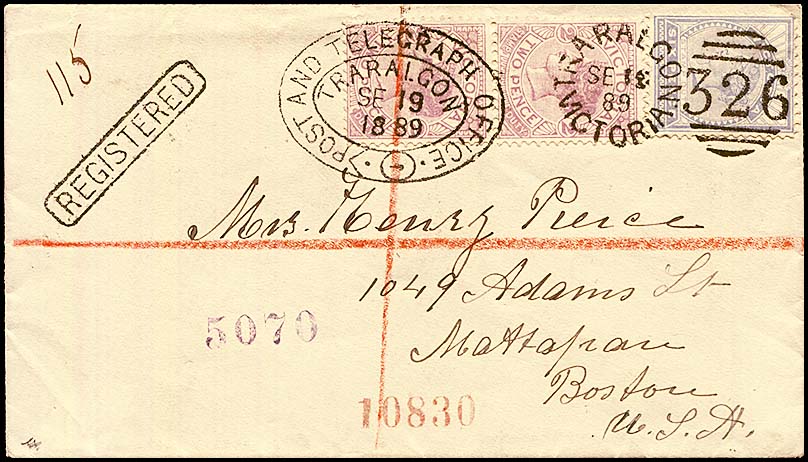 115
REGISTERED
POST AND TELEGRAPH OFFICE
TRARALGON
SE 19
1889
TWO PENCE
VIC
TRARALGON
SE 18
89
VICTORIA
326
Mrs. Henry Pierce
1049 Adams St
Mattapan
Boston
U.S.A.
5070
10830